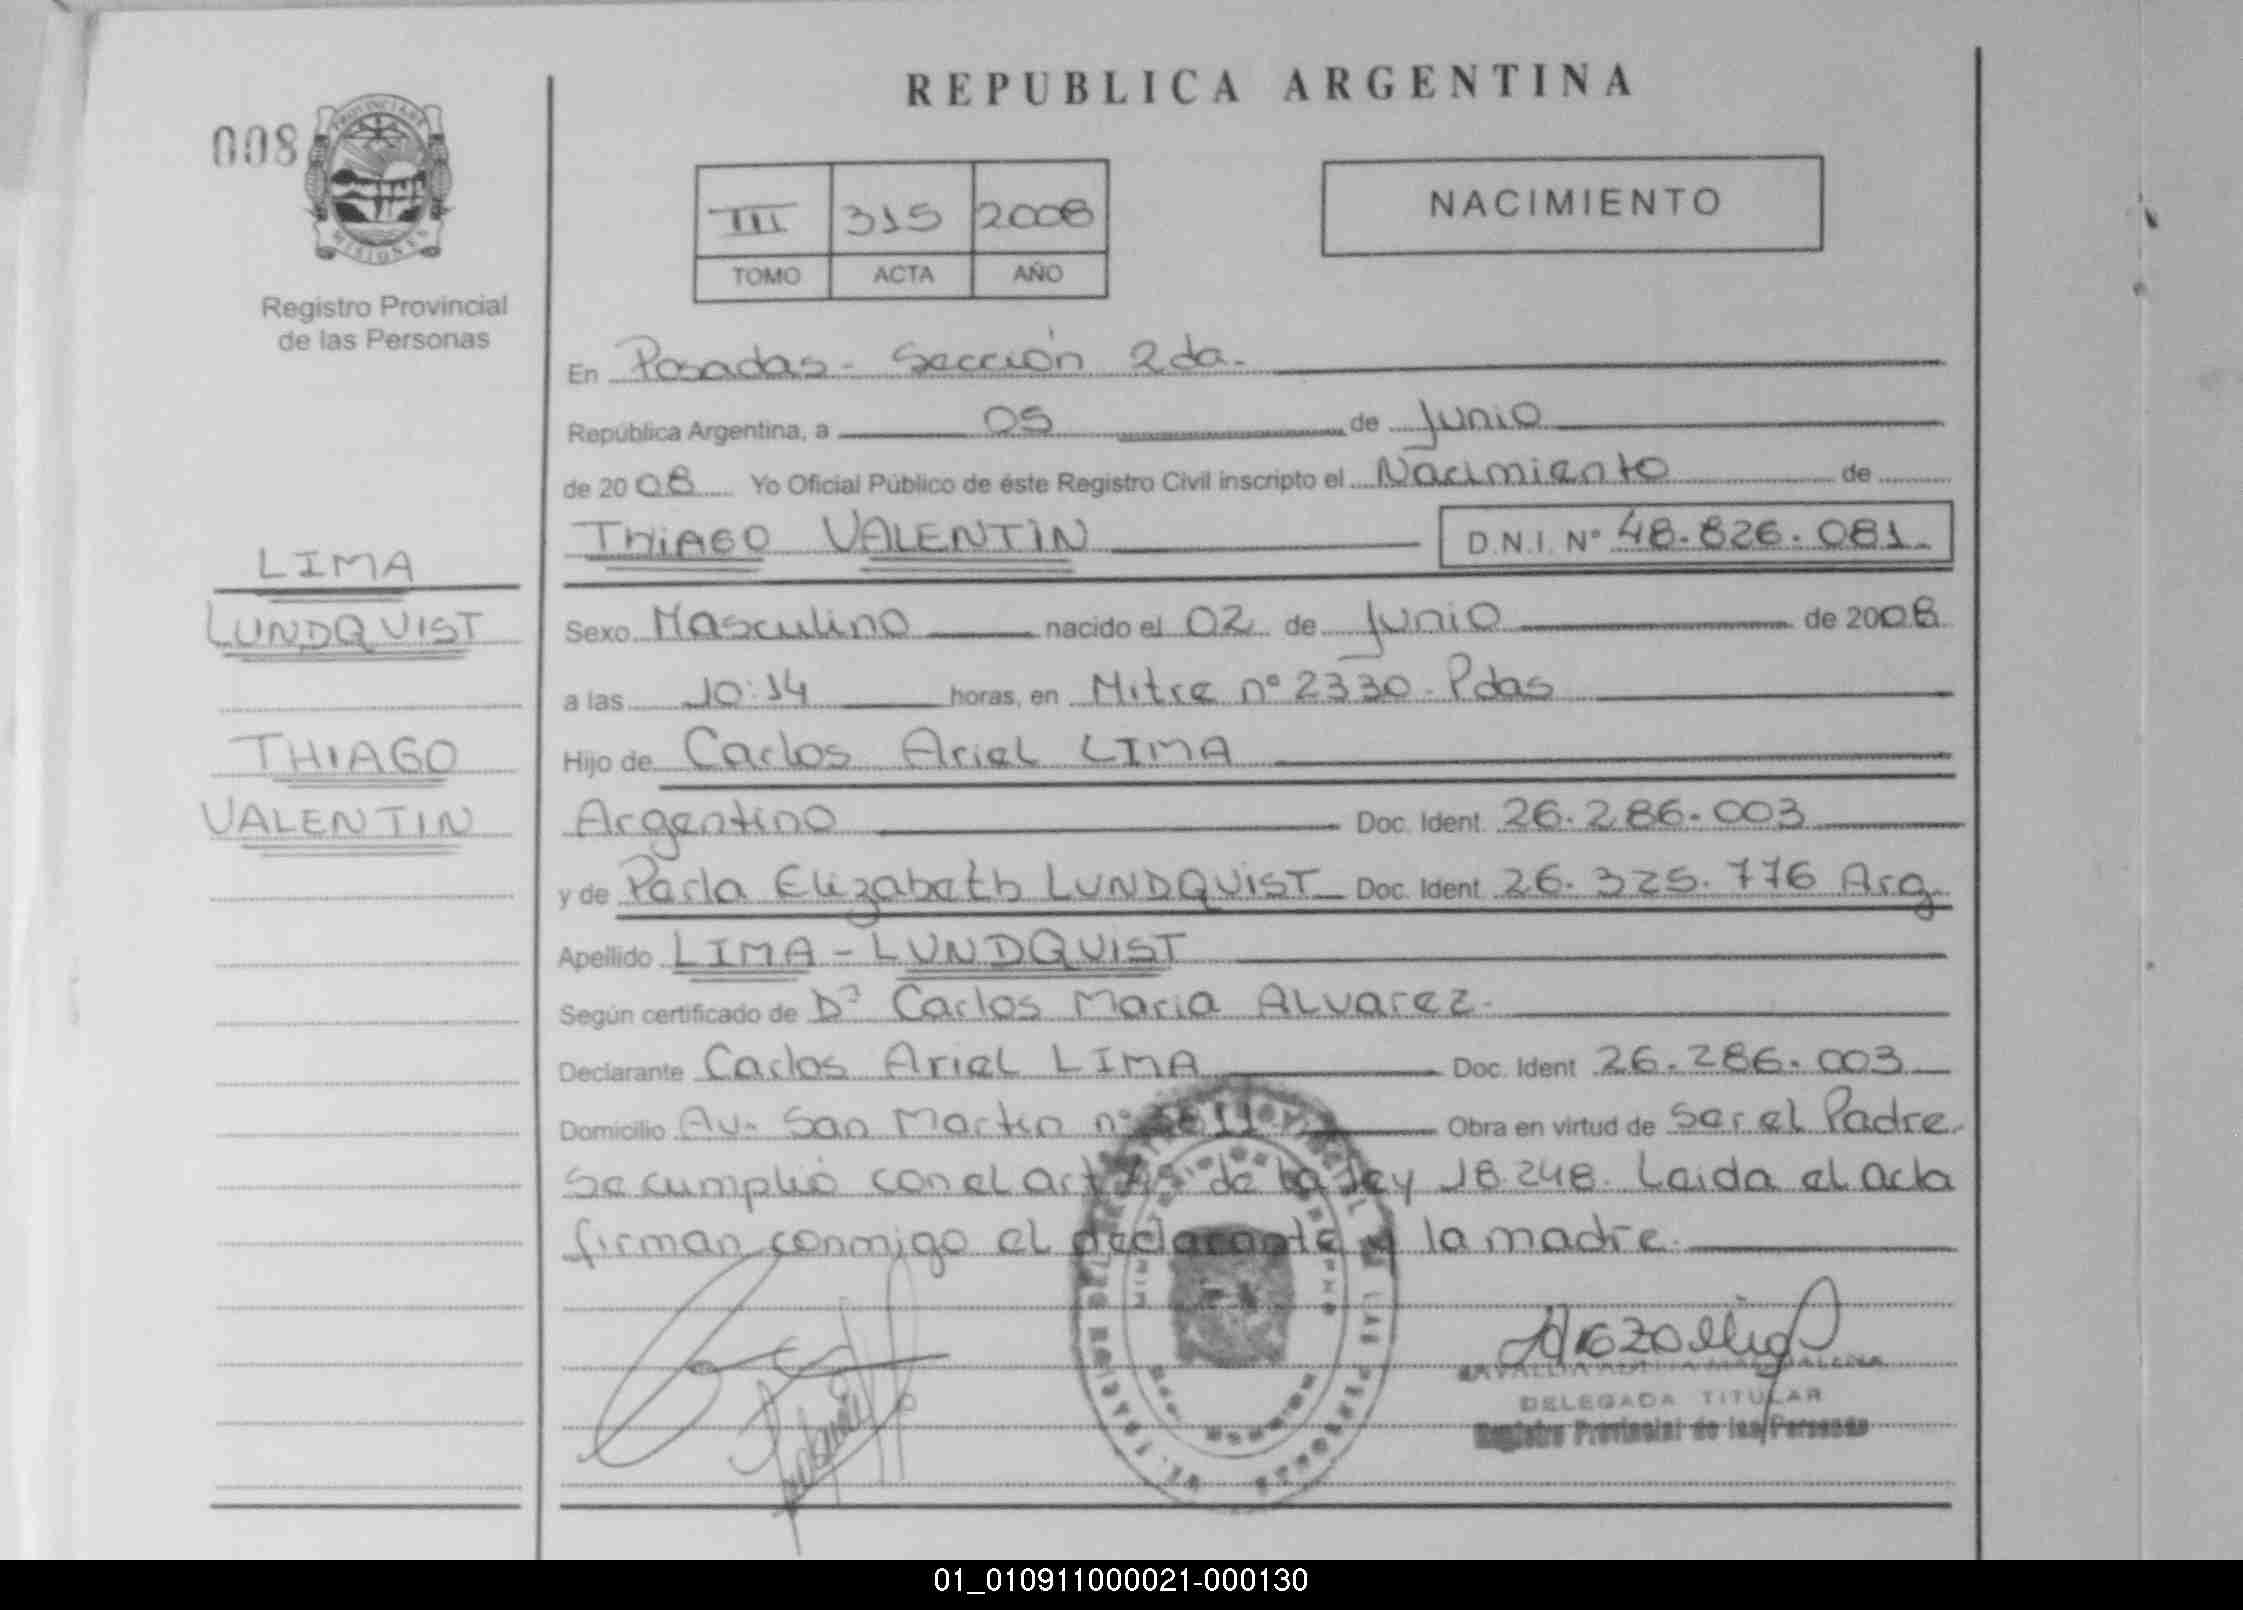 REPUBLICA ARGENTINA
008
PROVINCIA DE
MISIONES
Registro Provincial
de las Personas
III 315 2008
TOMO ACTA AÑO
NACIMIENTO
En Posadas - Sección 2da.
República Argentina, a 05 de Junio
de 2008 Yo Oficial Público de éste Registro Civil inscripto el Nacimiento de
THIAGO VALENTIN D.N.I. Nº 48.826.081.
LIMA
LUNDQUIST
THIAGO
VALENTIN
Sexo Masculino nacido el 02 de Junio de 2008
a las 10:14 horas, en Mitre nº 2330 - Pdas
Hijo de Carlos Ariel LIMA
Argentino Doc. Ident. 26.286.003
y de Paola Elizabeth LUNDQUIST Doc. Ident. 26.325.776 Arg.
Apellido LIMA - LUNDQUIST
Según certificado de Dr Carlos Maria ALVAREZ.
Declarante Carlos Ariel LIMA Doc. Ident 26.286.003
Domicilio Av. San Martin nº Obra en virtud de Ser el Padre.
Se cumplió con el art de la ley 18.248. Leida el acta
firman conmigo el declarante y la madre.
DELEGADA TITULAR
Registro Provincial de las Personas
01_010911000021-000130